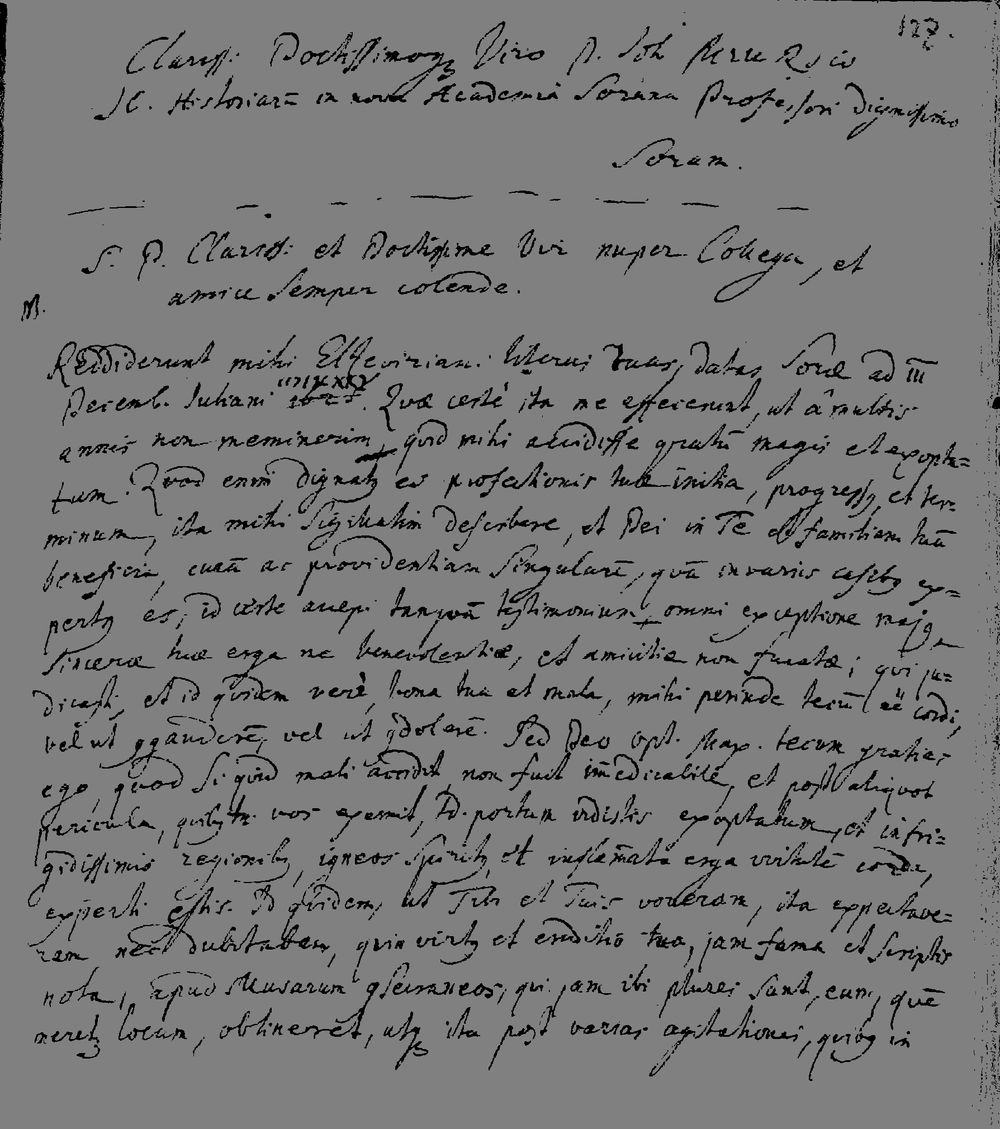 127.
Clariss: Doctissimoqz Viro D. Joh
JC. Historiarū in nova Academia Sorana Professori dignissimo
Soram.
S. P. Clariss: et Doctissime Vir nuper Collega, et
amice semper colende.
M.
Reddiderunt mihi Elzeviriani literas tuas, datas Soræ ad III
Decemb. Juliani. Quæ certè ita me effecerunt, ut â multis
annis non meminerim, quid mihi accidisse gratū magis et exopta=
tum. Quod enim dignatq es profectionis tuæ initia, progressq, et ter-
minum, ita mihi sigillatim describere, et Dei in Te et familiam tuā
beneficia, curā ac providentiam singularē, quā in variis casibq ex=
pertq es; id certe accepi tanquā testimonium omni exceptione majq
sinceræ tuæ erga me benevolentiæ, et amicitiæ non fucatæ; qui ju=
dicasti, et id quidem verè, bona tua et mala, mihi perinde tecū eē cordi,
vel ut ɔgauderē, vel ut ɔdolerē. Sed Deo Opt. Max. tecum gratias
ego, quod si quid mali accidit, non fuit im̄edicabile, et post aliquot
pericula, quibq tn. vos exemit, portum vidistis exoptatum, et in fri=
gidissimis regionibq, igneos spiritq, et inflam̄ata erga virtutē corda,
experti estis. Id quidem, ut Tibi et Tuis voveram, ita expectave=
ram nec dubitabam, quin virtq et eruditio tua, jam fama et scriptis
nota, apud Musarum ɔterraneos, qui jam ibi plures sunt, eum, quē
meretq locum, obtineret, utqz ita post varias agitationes, quibq in